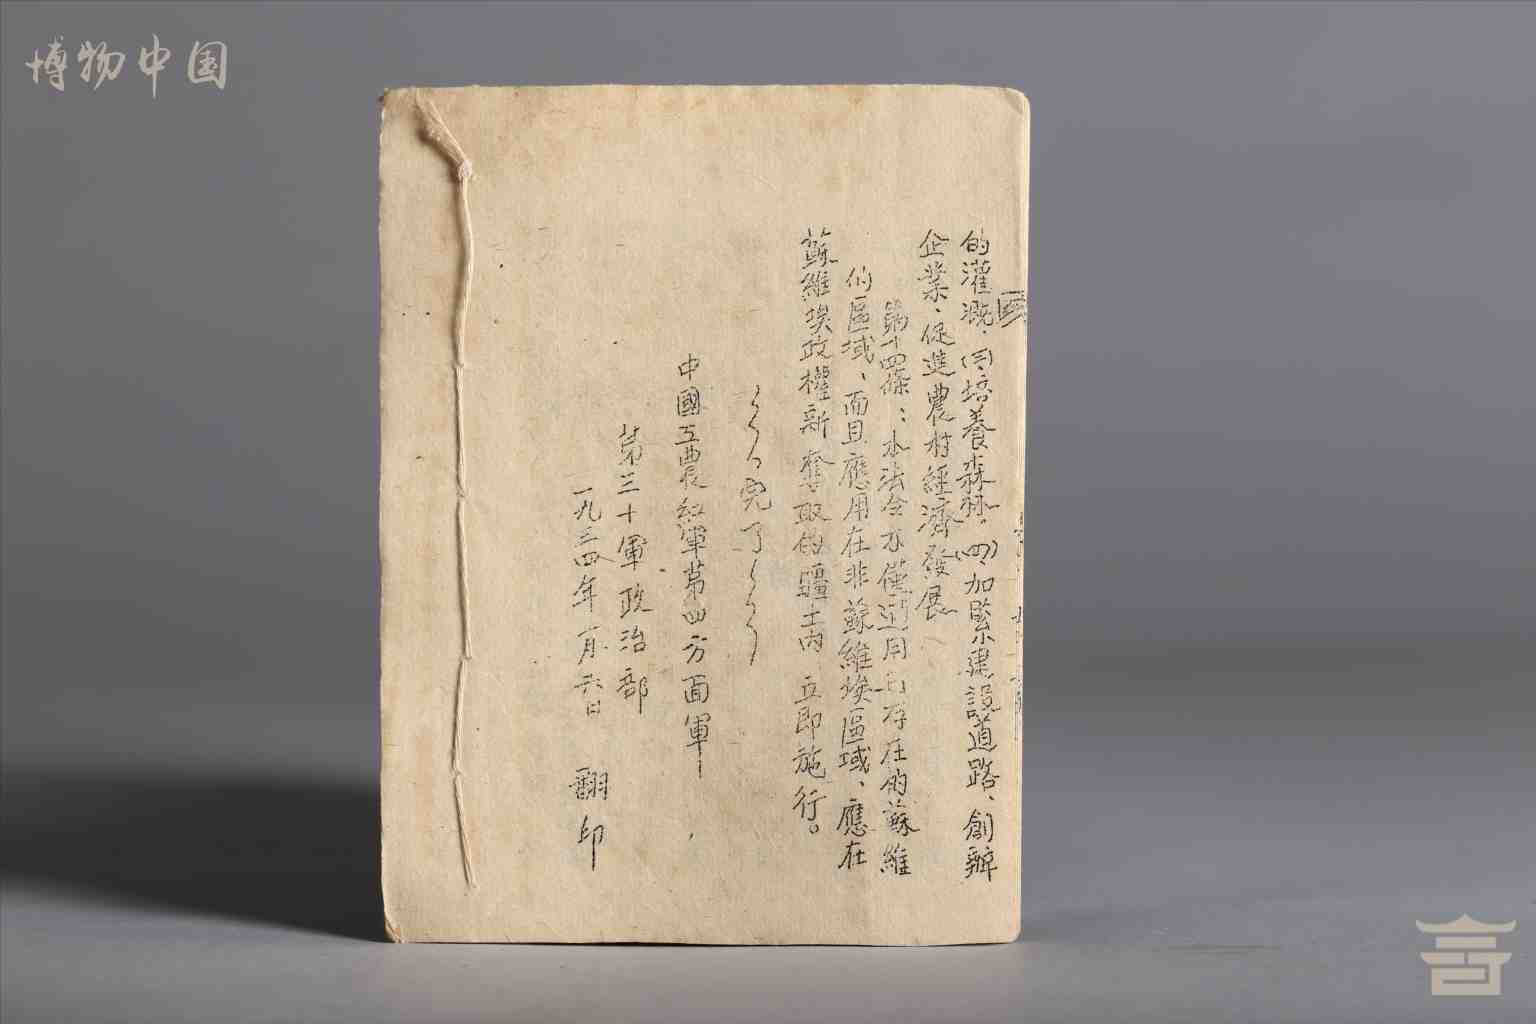 博物中国
的灌溉、(三)培養森林。(四)加緊建設道路、創辦
企業、促進農村經濟發展
第十四條：本法令不僅適用已存在的蘇維
的區域、而且應用在非蘇維埃區域、應在
蘇維埃政權新奪取的疆土內立即施行。
完了
中國工農紅軍第四方面軍
第三十軍政治部
一九三四年一月六日 翻印